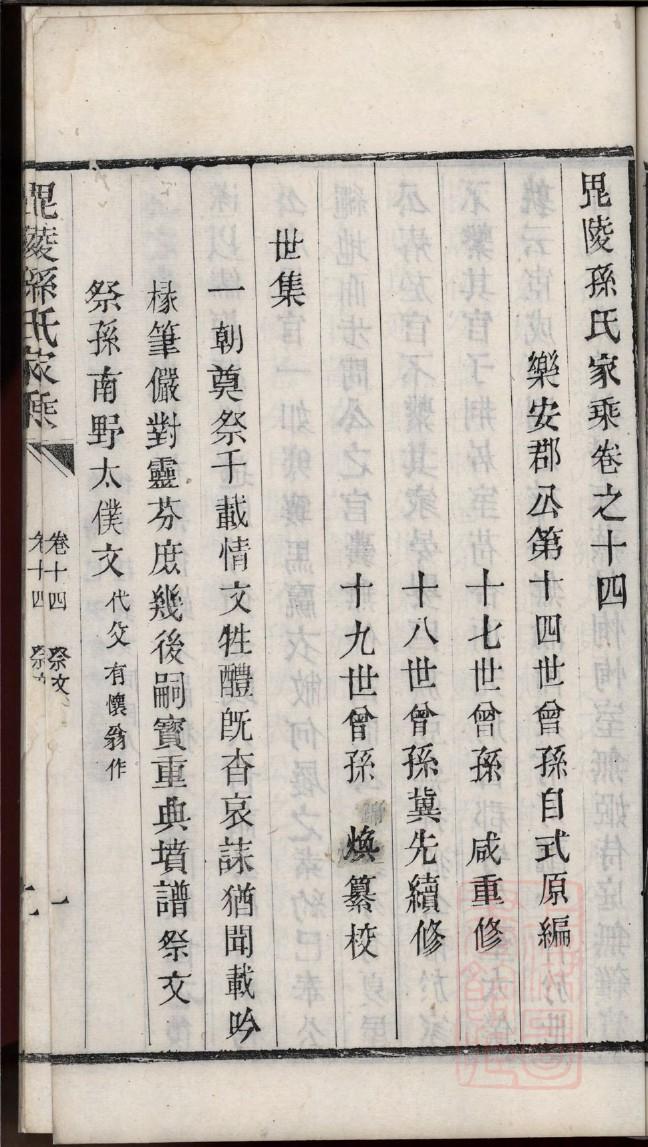 毘陵孫氏家乘卷之十四
樂安郡公第十四世曾孫自式原編
十七世曾孫　咸重修
十八世曾孫冀先續修
十九世曾孫　煥纂校
世集
一朝奠祭千載情文牲醴旣杳哀誄猶聞載吟
椽筆儼對靈芬庶幾後嗣寶重典墳譜祭文
祭孫南野太僕文代父有懷翁作
毘陵孫氏家乘　卷十四　祭文　一
卷十四